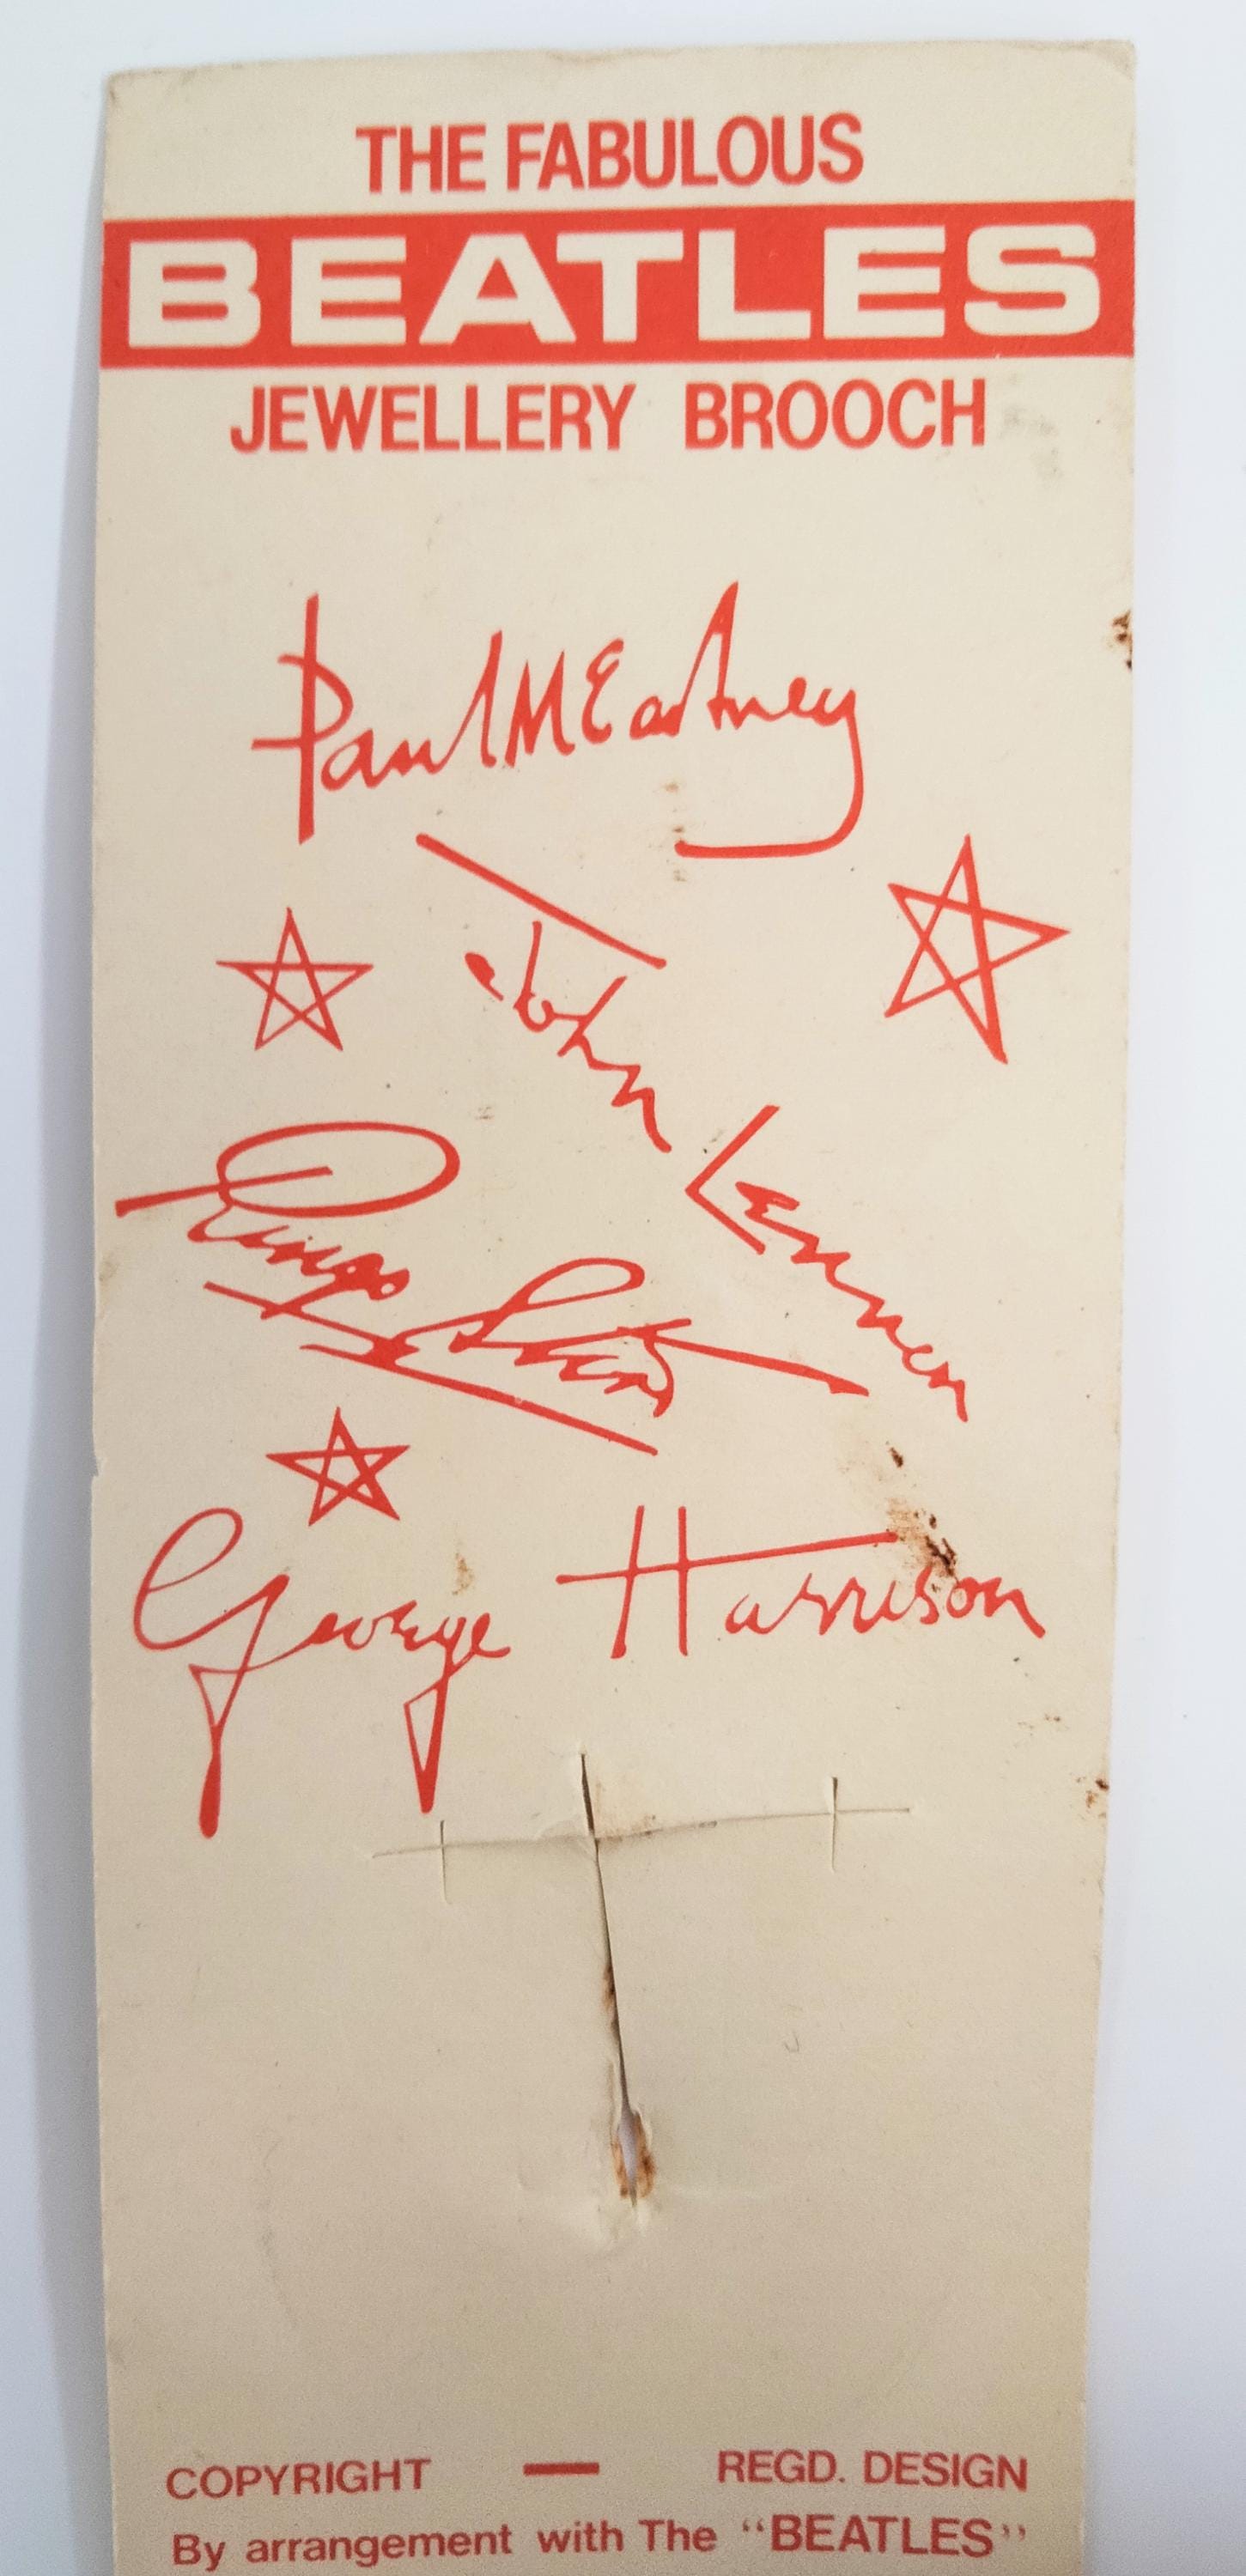 THE FABULOUS
BEATLES
JEWELLERY BROOCH
Paul McCartney
John Lennon
Ringo Starr
George Harrison
COPYRIGHT — REGD. DESIGN
By arrangement with The "BEATLES"